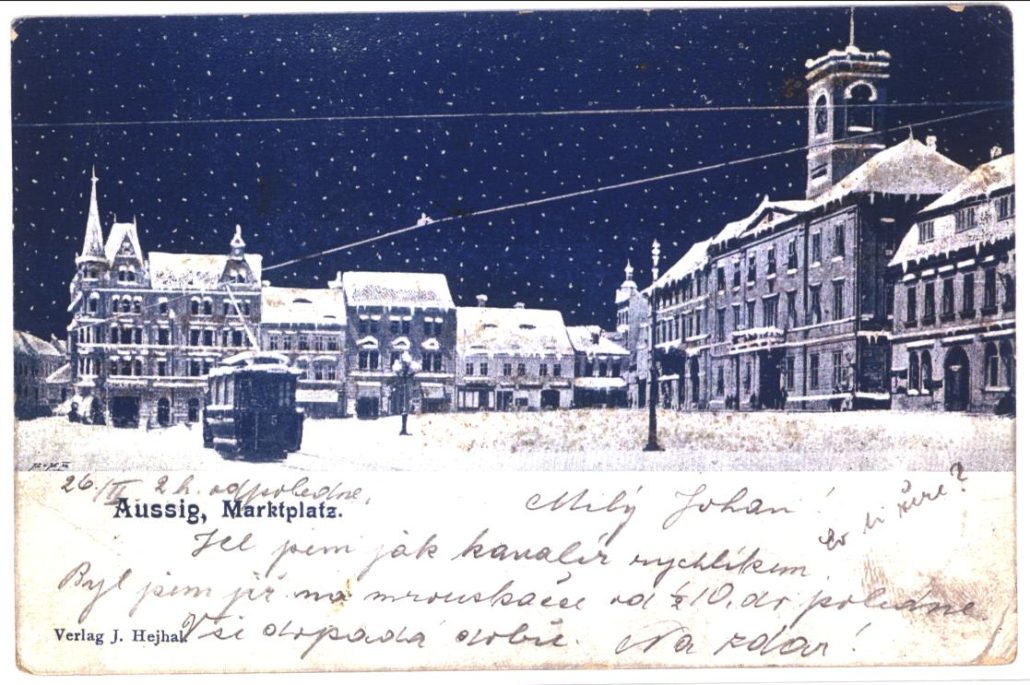 26./II 2 h. odpoledne.
Aussig, Marktplatz.
Milý Johan!
li žere?
Jel jsem jak kavalír rychlíkem.
Byl jsem již na od ½10. do poledne.
Vši dopadá dobře. Na zdar!
Verlag J. Hejhak